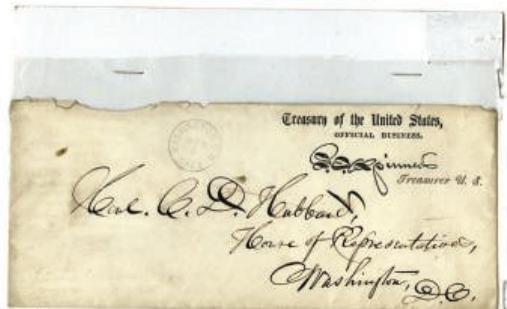 Treasury of the United States,
OFFICIAL BUSINESS.
Treasurer U. S.
Hon. C. D. Hubbard,
House of Representatives,
Washington, D.C.